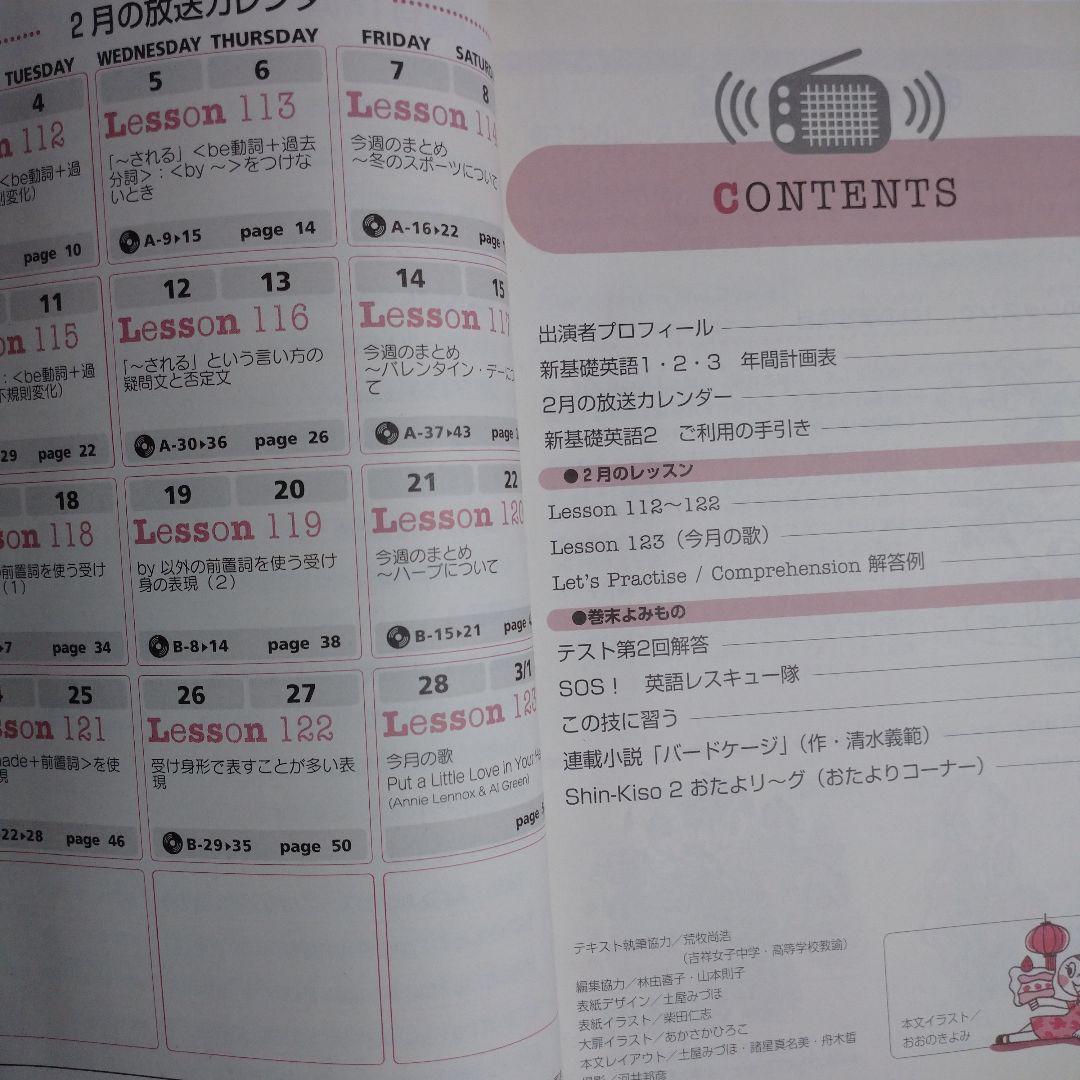 2月の放送カレンダー
TUESDAY WEDNESDAY THURSDAY FRIDAY
4
5 6
7 8
112
Lesson 113
Lesson 114
<be動詞+過
「～される」<be動詞+過去
分詞>:<by ～>をつけな
いとき
今週のまとめ
～冬のスポーツについて
page 10
A-9▶15 page 14
A-16▶22
11
12 13
14 15
115
Lesson 116
Lesson 117
:<be動詞+過
不規則変化)
「～される」という言い方の
疑問文と否定文
今週のまとめ
～バレンタイン・デーにつ
て
29 page 22
A-30▶36 page 26
A-37▶43 page
18
19 20
21 22
118
Lesson 119
Lesson 120
前置詞を使う受け
(1)
by 以外の前置詞を使う受け
身の表現(2)
今週のまとめ
～ハーブについて
7 page 34
B-8▶14 page 38
B-15▶21 page
25
26 27
28 3/1
121
Lesson 122
Lesson 123
made+前置詞>を使
現
受け身形で表すことが多い表
現
今月の歌
Put a Little Love in Your
(Annie Lennox & Al Green)
22▶28 page 46
B-29▶35 page 50
page
CONTENTS
出演者プロフィール
新基礎英語1・2・3 年間計画表
2月の放送カレンダー
新基礎英語2 ご利用の手引き
●2月のレッスン
Lesson 112～122
Lesson 123(今月の歌)
Let's Practise / Comprehension 解答例
●巻末よみもの
テスト第2回解答
SOS! 英語レスキュー隊
この技に習う
連載小説「バードケージ」(作・清水義範)
Shin-Kiso 2 おたよリ～グ(おたよりコーナー)
テキスト執筆協力/荒牧尚浩
(吉祥女子中学・高等学校教諭)
編集協力/林由喜子・山本則子
表紙デザイン/土屋みづほ
表紙イラスト/柴田仁志
大扉イラスト/あかさかひろこ
本文レイアウト/土屋みづほ・諸星真名美・舟木哲
本文イラスト/
おおのきよみ